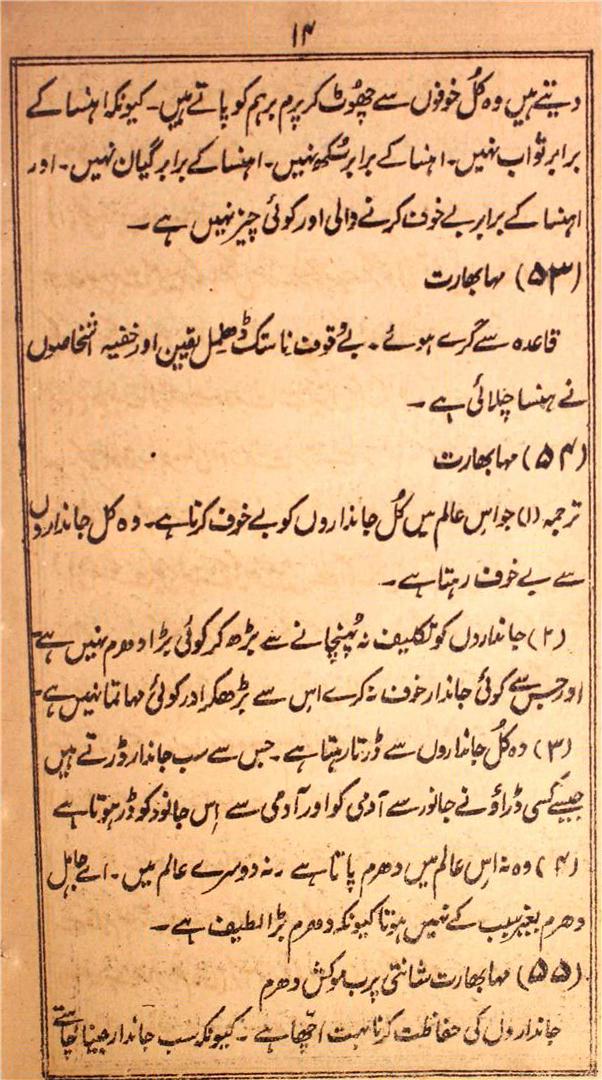 ۱۴
دیتے ہیں وہ کُل خوفوں سے چھُوٹ کر پرم برہم کو پاتے ہیں۔ کیونکہ اہنسا کے
برابر ثواب نہیں۔ اہنسا کے برابر سُکھ نہیں۔ اہنسا کے برابر گیان نہیں۔ اور
اہنسا کے برابر بے خوف کرنے والی اور کوئی چیز نہیں ہے ۔
(۵۳) مہابھارت
قاعدہ سے گرے ہوئے ۔ بے وقوف ناستک ڈھلمل یقین اور خفیہ اشخاصوں
نے ہنسا چلائی ہے ۔
(۵۴) مہابھارت
ترجمہ (۱) جو اس عالم میں کُل جانداروں کو بے خوف کرتا ہے۔ وہ کل جانداروں
سے بے خوف رہتا ہے ۔
(۲) جانداروں کو تکلیف نہ پُہنچانے سے بڑھ کر کوئی بڑا دھرم نہیں ہے
اور جس سے کوئی جاندار خوف نہ کرے اس سے بڑھکر اور کوئی مہاتما نہیں ہے۔
(۳) وہ کُل جانداروں سے ڈرتا رہتا ہے ۔ جس سے سب جاندار ڈرتے ہیں
جیسے کسی ڈراؤنے جانور سے آدمی کو اور آدمی سے اِس جانور کو ڈر ہوتا ہے
(۴) وہ نہ اِس عالم میں دھرم پاتا ہے ۔ نہ دوسرے عالم میں ۔ اے جاہل
دھرم بغیر سبب کے نہیں ہوتا کیونکہ دھرم بڑا لطیف ہے ۔
(۵۵) مہابھارت شانتی پرب موکش دھرم
جانداروں کی حفاظت کرنا بہت اچھا ہے ۔ کیونکہ سب جاندار جینا چاہتے